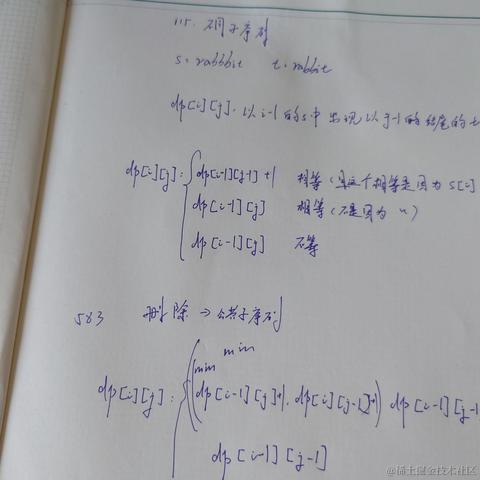 115. 不同子序列
s: rabbbit  t: rabbit
dp[i][j]. 以 i-1 的 s 中 出现以 j-1 的 结尾的 t
dp[i][j]: dp[i-1][j-1] +1 相等 (且这个相等是因为 s[i]
dp[i-1][j] 相等 (不是因为 ~)
dp[i-1][j] 不等
583 删除 → 公共子序列
min min
dp[i][j]: (dp[i-1][j]+1, dp[i][j-1]+1) dp[i-1][j-1
dp[i-1][j-1]
@稀土掘金技术社区